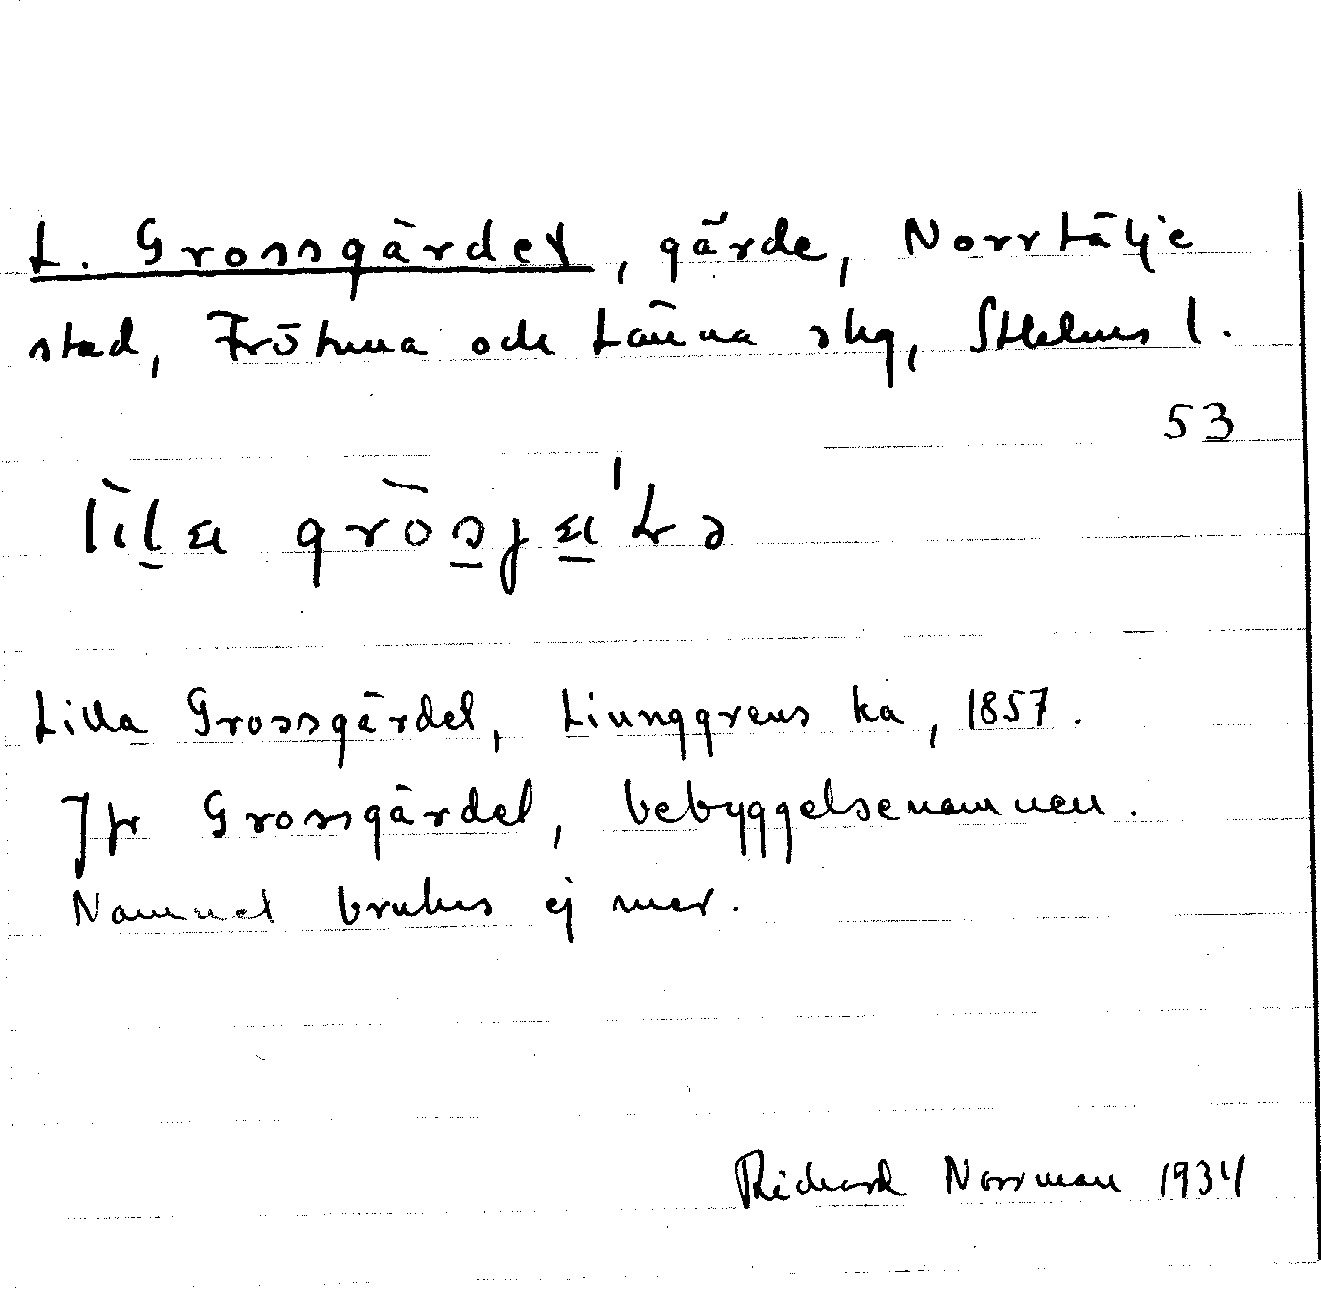 L. Grossgärdet, gärde, Norrtälje
stad, Frötuna och Länna skg, Sthlms l.
53
Lilla Grossgärdet, Liunggrens ka, 1857.
Jfr Grossgärdet, bebyggelsenamnen.
Namnet brukas ej mer.
Richard Norrman 1934